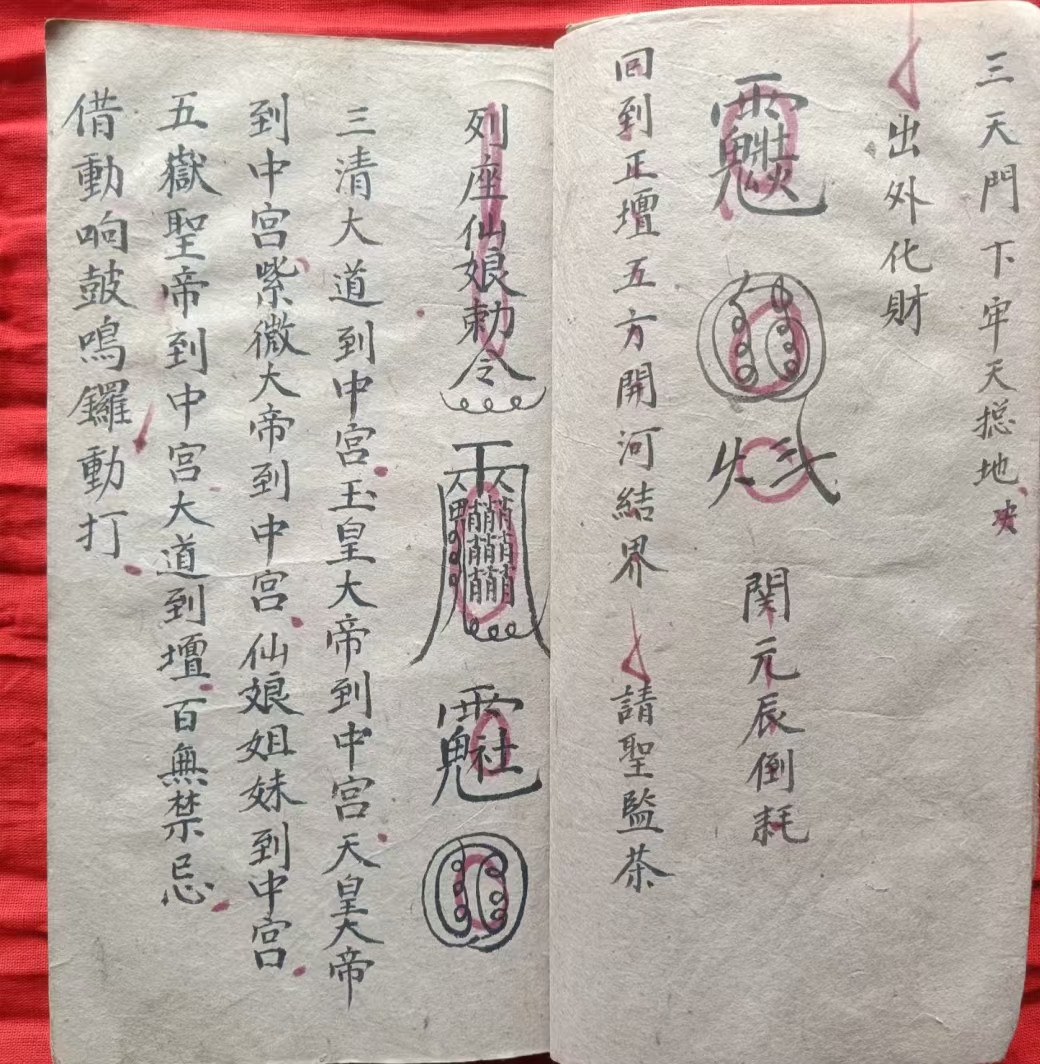 三天門下牢天摠地
出外化財
関元辰倒耗
回到正壇五方開河結界
請聖監茶
列座仙娘勅令
三清大道到中宮玉皇大帝到中宮天皇大帝
到中宮紫微大帝到中宮仙娘姐妹到中宮
五嶽聖帝到中宮大道到壇百無禁忌
借動响鼓鳴鑼動打